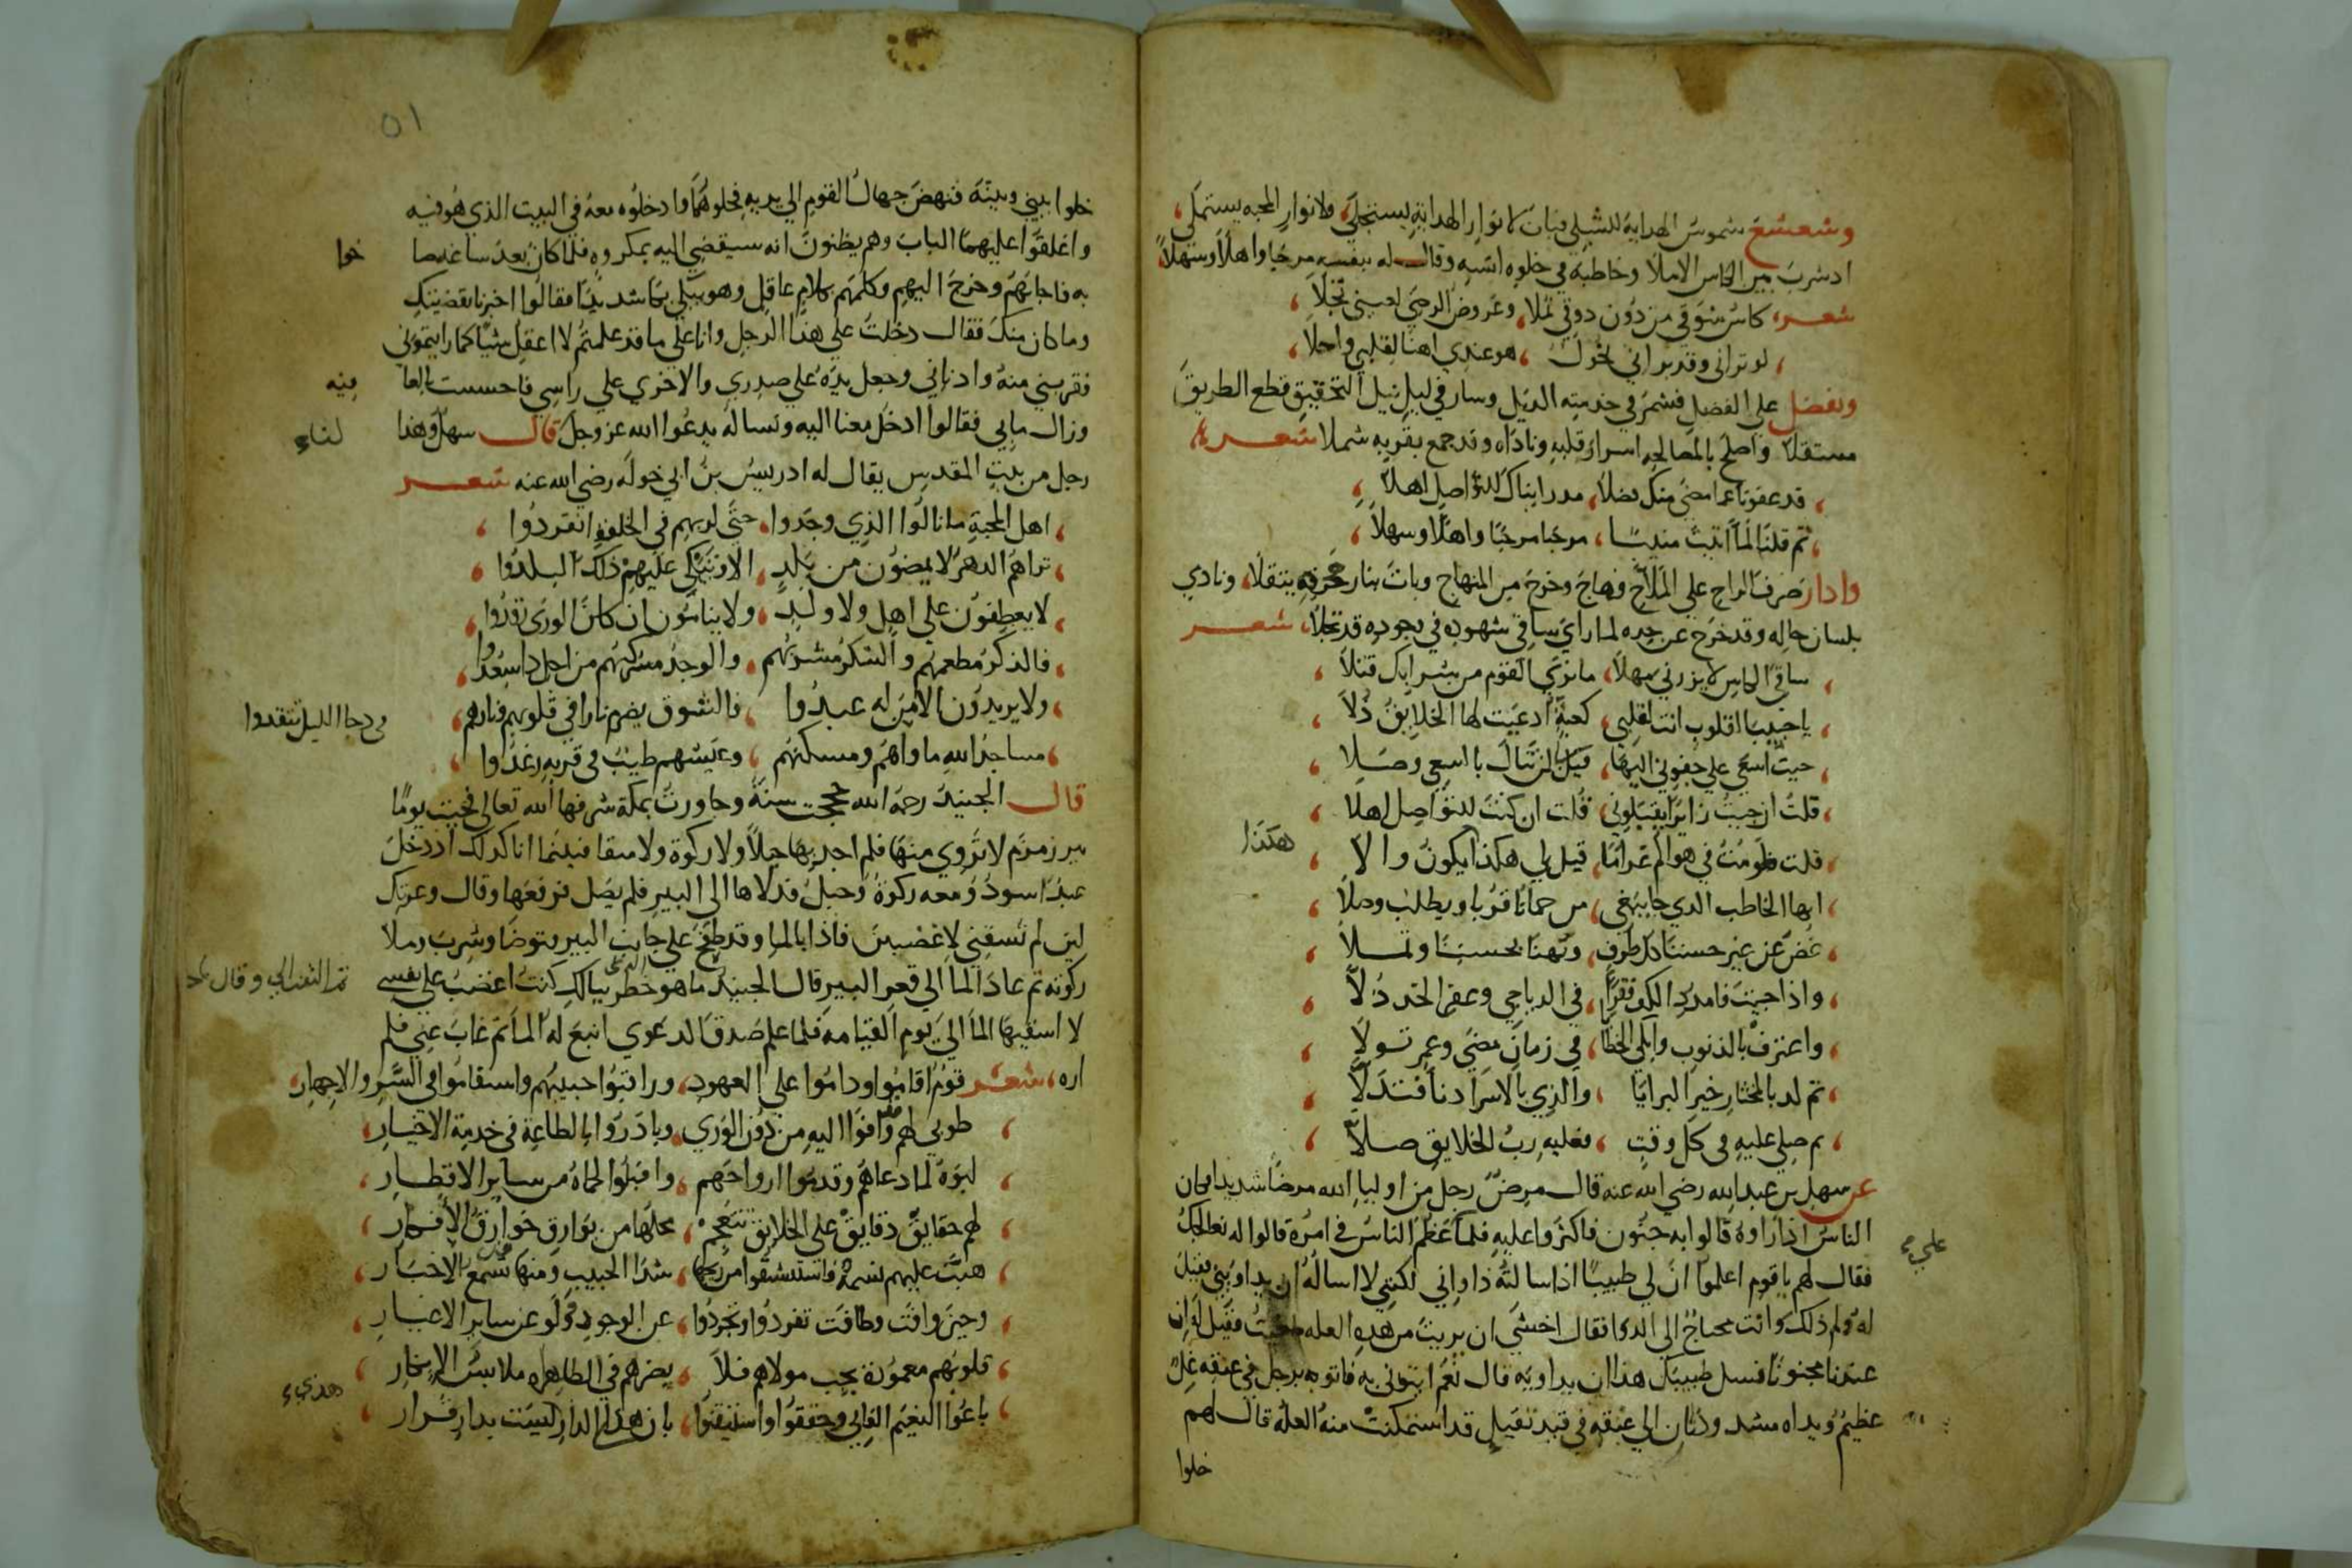 وشعشع شموس الهداية للشبلي فبات لانوار الهداية يستجلي ولانوار المحبه يستملي
اذ شرب من الكاس الاملا وخاطبه في خلوه انسه وقال له بنفسه مرحبا واهلا وسهلا
شعر كاس شوقي من دون ذوقي تملا وعروض الرضي لعيني تجلا
لو تراني وقد براني نحول هو عندي اهنا لقلبي واحلا
وتفضل علي الفضيل فشمر في خدمته الذيل وسار في ليل نيل التحقيق قطع الطريق
مستقلا واصلح بالمصالحه اسرار قلبه وناداه وقد جمع بقربه شملا شعر
قد عفونا عما مضي منك فضلا مذ رايناك للتواصل اهلا
ثم قلنا لما اتيت منيبا مرحبا مرحبا واهلا وسهلا
وادار صرف الراح علي الحلاج فهاج وخرج من المنهاج وبات بنار يتقلا ونادي
بلسان حاله وقد خرج عن حده لما راي ساقي شهوده في وجوده قد تجلا شعر
ساقي الكاس لا يزرني مهلا ما تري القوم من شرابك قتلا
يا حبيب القلوب انت لقلبي كعبة ادعيت لها الخلايق ذلا
حيت اسعي علي جفوني اليها قيل لن تنال بالسعي وصلا
قلت ان جيت زايرا يقبلوني قلت ان كنت للتواصل اهلا
قلت في هواكم غراما قيل لي هكذا يكون والا
هكذا
ايها الخاطب الذي جا يبتغي من حمانا قربا ويطلب وصلا
غض عن غير حسننا كل طرف وتهنا بحسننا وتملا
واذا جيت فامدد الكف فقرا في الدياجي وعفر الخد ذلا
واعترف بالذنوب وابكي الخطا في زمان مضي وعمر تولا
ثم لذ بالمختار خير البرايا والذي بالاسرا دنا فتدلا
ثم صلي عليه في كل وقت فعليه رب الخلايق صلا
عن سهل بن عبد الله رضي الله عنه قال مرض رجل من اوليا الله مرضا شديدا فكان
الناس اذا راوه قالوا به جنون فاكثروا عليه فلما عظم الناس في امره قالوا له نعالجك
فقال لهم يا قوم اعلموا ان لي طبيبا اذا سالته داواني لكنني لا اساله ان يداويني فقيل
له ولم ذلك وانت محتاج الي الدوا فقال اخشي ان بريت من هذه العله طغيت فقيل له ان
عندنا مجنونا فسل طبيبك هذا ان يداويه قال نعم ايتوني به فاتوه برجل في عنقه غل
عظيم ويداه مشدودتان الي عنقه في قيد ثقيل قد استمكنت منه العله قال لهم
خلوا
٥١
خلوا بيني وبينه فنهض جهال القوم الي يديه فحلوهما وادخلوه معه في البيت الذي هو فيه
واغلقوا عليهما الباب وهم يظنون انه سيقضي اليه بمكروه فلما كان بعد ساعه صا
حوا
به فاجابهم وخرج اليهم وكلمهم بكلام عاقل وهو يبكي بكا شديدا فقالوا اخبرنا بقضيتك
وما كان منك فقال دخلت علي هذا الرجل وانا علي ما قد علمتم لا اعقل شيا كما رايتموني
فقربني منه وادناني وجعل يده علي صدري والاخري علي راسي فاحسست بالعا
فيه
وزال ما بي فقالوا ادخل معنا اليه ونساله يدعوا الله عز وجل قال سهل وهذا
لنا
رجل من بيت المقدس يقال له ادريس بن ابي خوله رضي الله عنه شعر
اهل المحبة ما نالوا الذي وجدوا حتي لربهم في الخلوة انفردوا
تراهم الدهر لا يمضون من بلد الا وتبكي عليهم ذلك البلدوا
لا يعطفون علي اهل ولا ولد ولا ينامون ان كان الوري رقدوا
فالذكر مطعمهم والشكر مشربهم والوجد مركبهم من اجل ذا سعدوا
ولا يريدون الا من له عبدوا فالشوق يضرم نارا في قلوبهم فنارهم
في دجا الليل تتقدوا
مساجد الله ماواهم ومسكنهم وعيشهم طيب في قربه رغدوا
قال الجنيد رحمه الله حججت سنة وجاورت بمكة شرفها الله تعالي فجيت يوما
بير زمزم لا تروي منها فلم اجد بها حبلا ولا ركوة ولا سقا فبينما انا كذلك اذ دخل
عبد اسود ومعه ركوة وحبل فدلاها الي البير فلم يصل فرفعها وقال وعزتك
لين لم تسقني لاغضبن فاذا بالما وقد طفح علي جانب البير فتوضا وشرب وملا
ركوته ثم عاد الما الي قعر البير قال الجنيد ما هو خطر ببالك كنت اغضب علي نفسي
ثم التفت الي وقال
لا اسقيها الما الي يوم القيامه فلما علم صدق الدعوي انبع له الما ثم غاب عني فلم
اره شعر قوم اقاموا وداموا علي العهود وراقبوا حبيبهم واستقاموا في السر والاجهار
طوبي لهم وافوا اليه من دون الوري وبادروا بالطاعة في خدمة الاخيار
لبوه لما دعاهم وقدموا ارواحهم واقبلوا لحماه من ساير الاقطار
لهم حقايق دقايق علي الخلايق تنعجم محلها من بوارق خوارق الافكار
هبت عليهم نسمة فاستنشقوا من ريحها شذا الحبيب ومنها تسمع الاخبار
وحين وافت وطافت تفردوا وتجردوا عن الوجود وولو عن ساير الاغيار
قلوبهم معمورة بحب مولاهم فلا يضرهم في الظاهر ملابس الاطمار
باعوا النعيم الفاني وحققوا واستيقنوا بان هذي الدار ليست بدار قرار
هذي